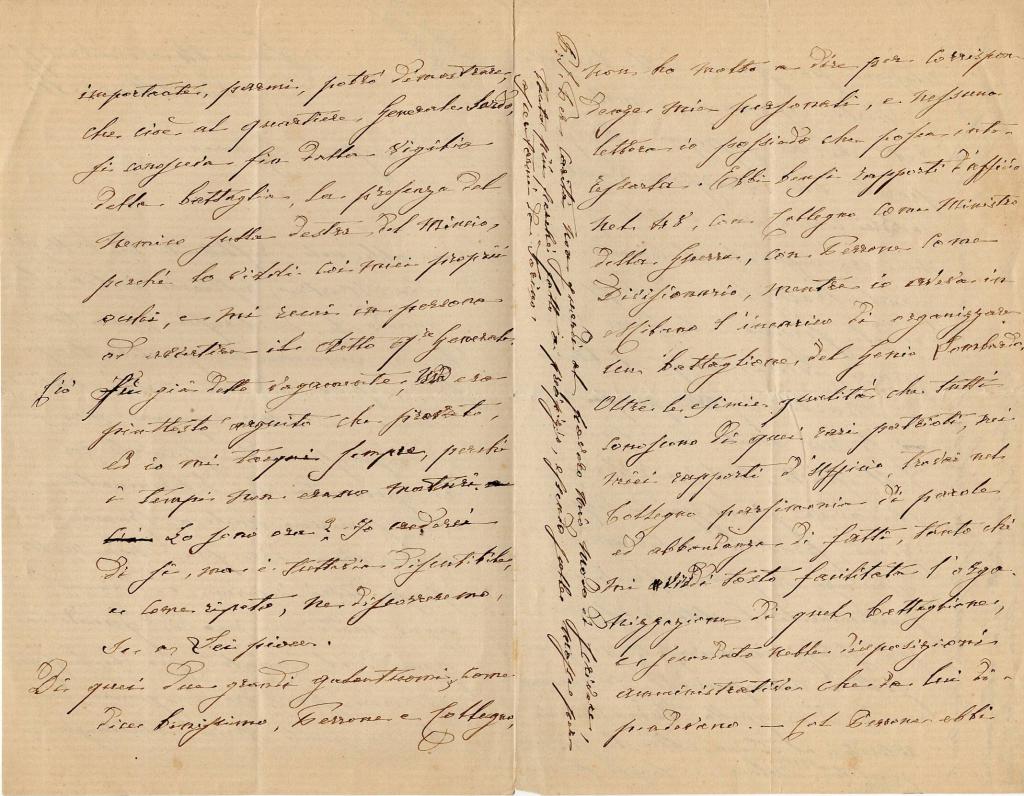 importante, parmi, potrò dimostrare,
che cioè al quartiere Generale Sardo,
si conosceva fin dalla vigilia
della battaglia, la presenza del
nemico sulla destra del Mincio,
perchè lo vidi coi miei proprii
occhi, e mi recai in persona
ad avvertire il detto Qre Generale.
Ciò fu già detto vagamente, ma era
piuttosto arguito che provato,
ed io mi tacqui sempre, perchè
i tempi non erano maturi.
Lo sono ora? Io crederei
di sì, ma è tuttavia discutibile,
e come ripeto, ne discorreremo,
se a Lei piace.
Di quei due grandi galantuomini, come
dice benissimo, Perrone e Collegno,
non ho molto a dire per corrispon
denze mie personali, e nessuna
lettera io possiedo che possa inte-
ressarla. Ebbi bensì rapporti d'ufficio
nel 48, con Collegno come Ministro
della Guerra, con Perrone come
Divisionario, mentre io aveva in
Milano l'incarico di organizzare
un battaglione, del Genio Lombardo.
Oltre le esimie qualità che tutti
conoscono di quei rari patrioti, nei
miei rapporti d'Ufficio, trovai nel
Collegno parsimonia di parole
ed abbondanza di fatti, tanto che
mi vidi tosto facilitata l'orga
nizzazione di quel battaglione,
e secondato nelle disposizioni
amministrative che da lui di-
pendevano. — Col Perrone ebbi
P.S. Per carità non guardi al povero mio modo di scrivere,
tanto più perchè fatto a precipizio, essendo stato assente per